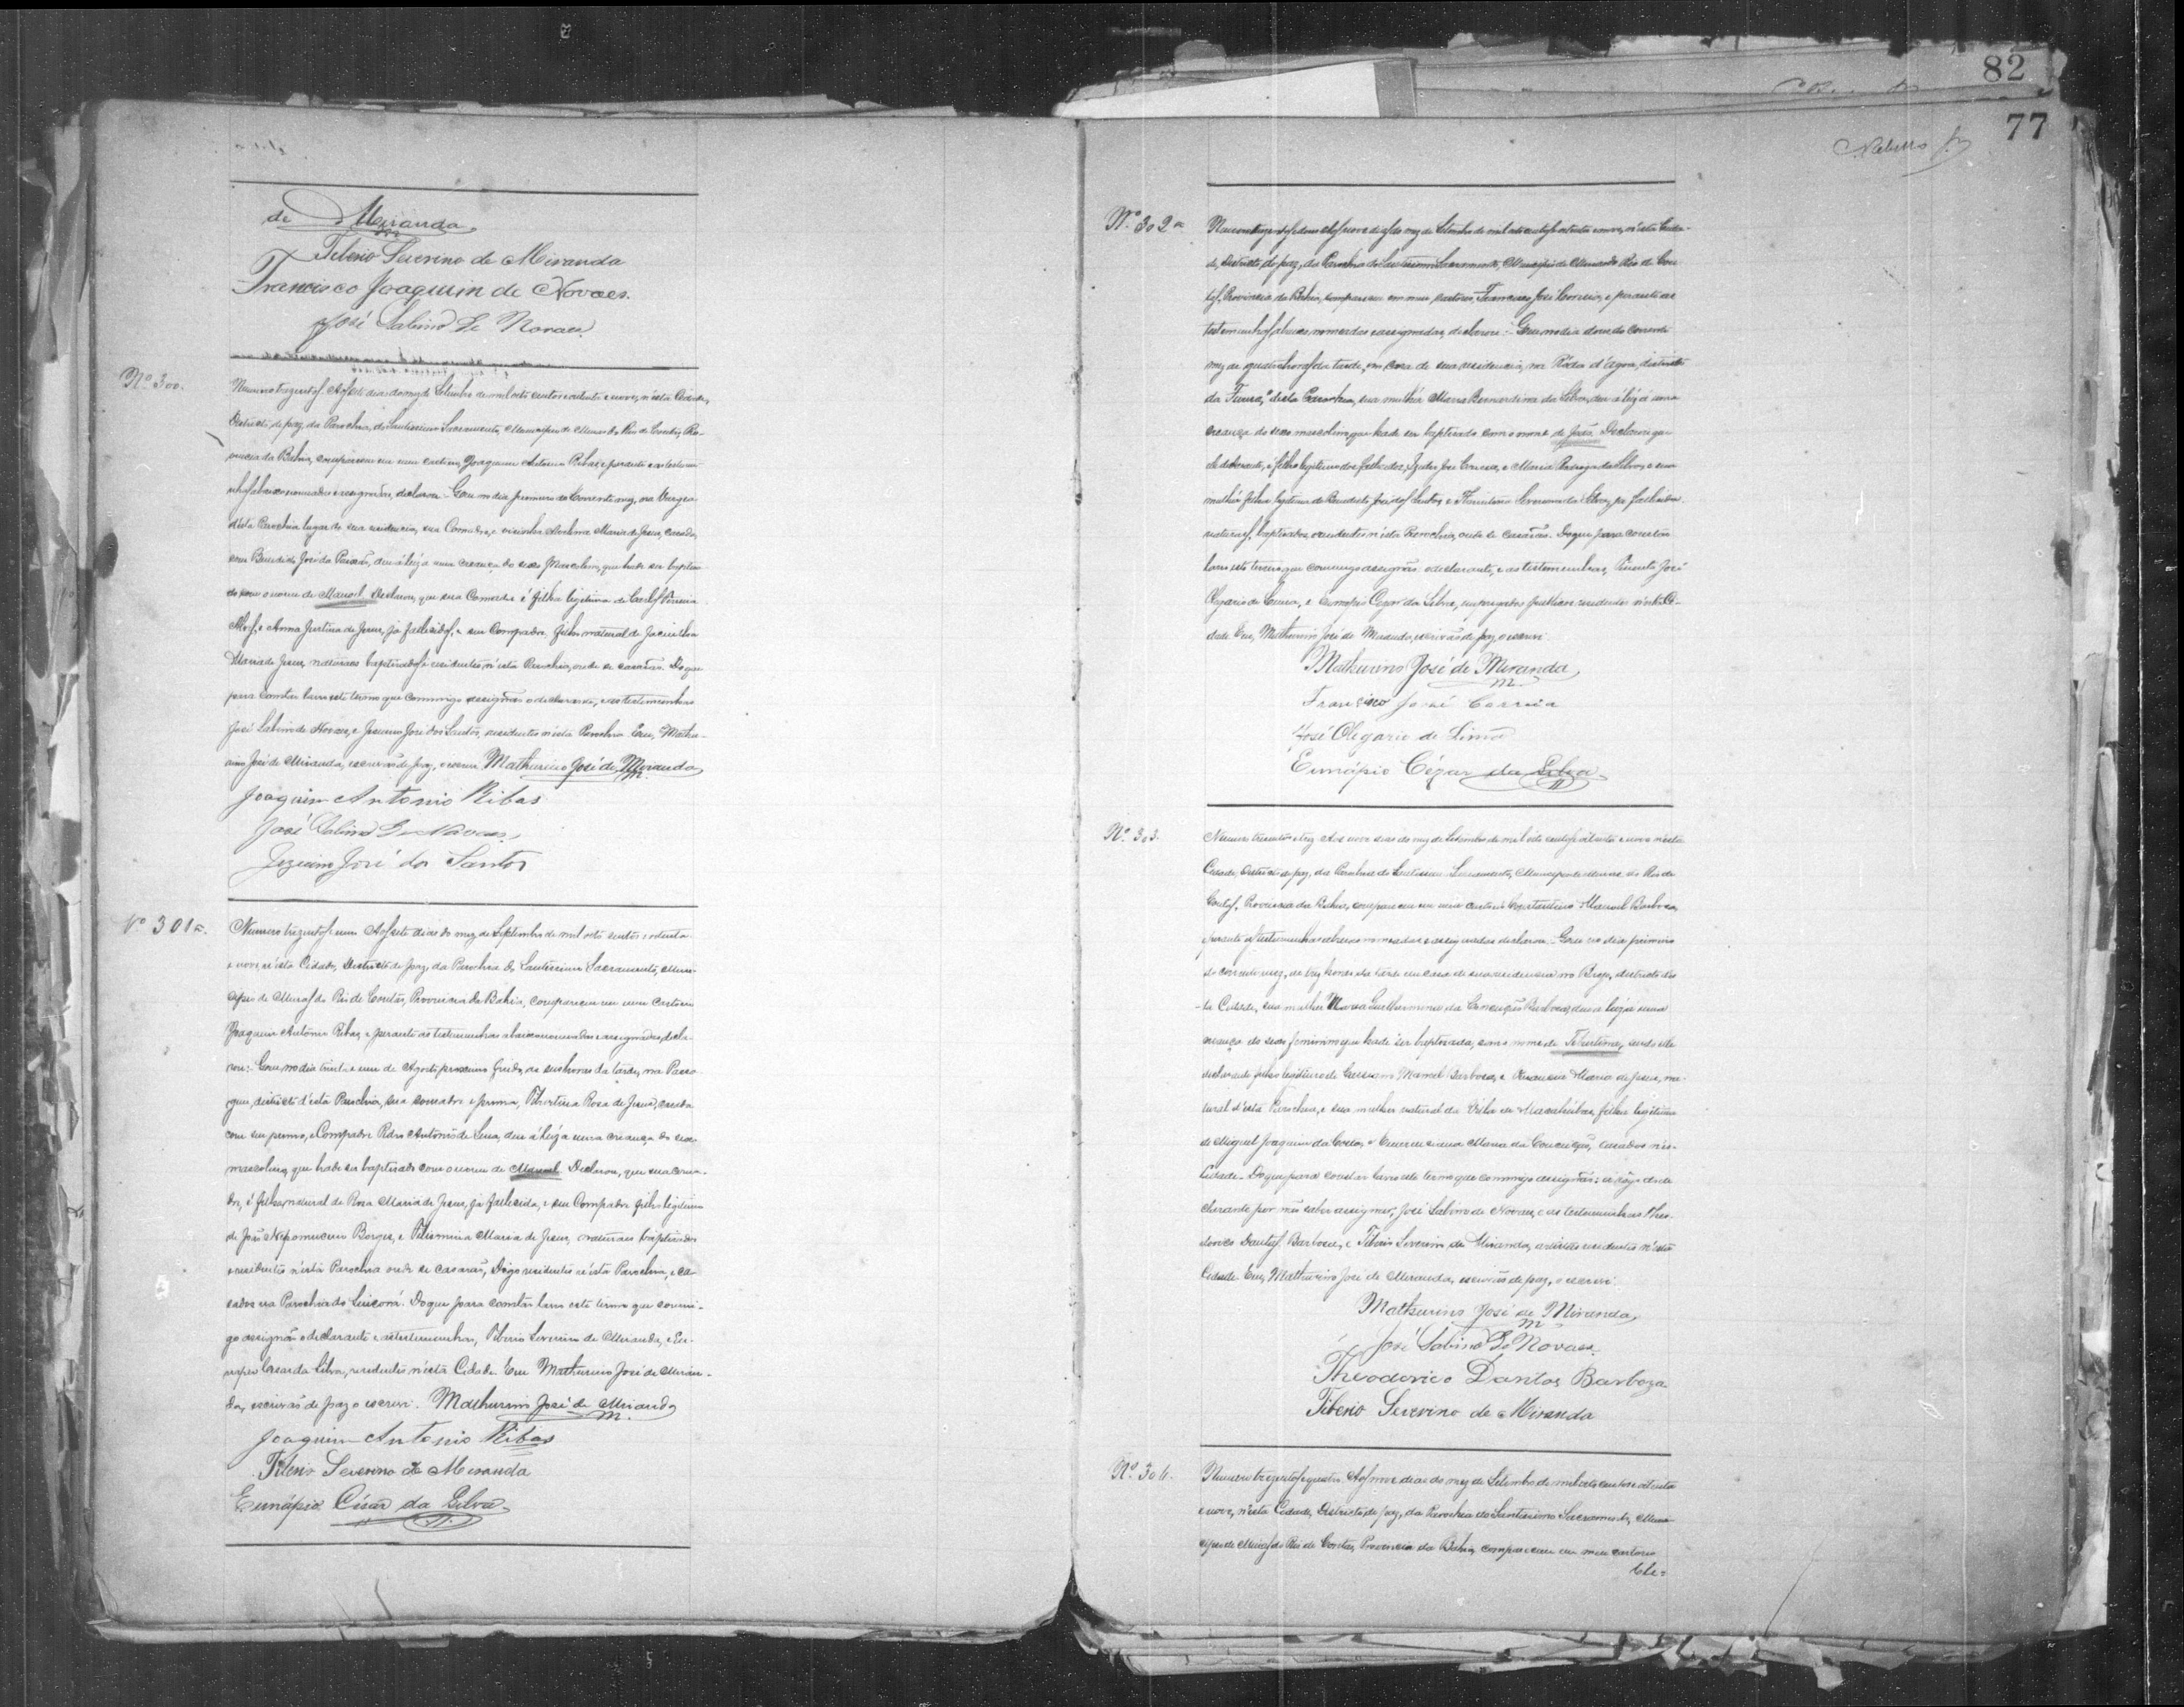 82
77
de Miranda
Tiberio Severino de Miranda
Francisco Joaquim de Novaes.
José Sabino de Novaes
Nº 300.
Numero trezentos. Aos sete dias do mez de Setembro de mil oito centos e oitenta e nove, n'esta Cidade,
Districto de paz, da Parochia do Santissimo Sacramento, Municipio de Minas do Rio de Contas, Pro-
vincia da Bahia, compareceu em meu cartorio Joaquim Antonio Ribas, e perante as testemu-
nhas abaixo nomeadas e assignadas, declarou: Que no dia primeiro do Corrente mez, na
d'esta Parochia lugar de sua residencia, sua Comadre, e visinha Maria de Jesus, casada
com Benedicto José da Paixão, deu á luz a uma creança do sexo Masculino, que hade ser baptisa-
do com o nome de Manoel. Declarou, que sua Comadre é filha legitima de Carlos Pereira
Alves, e Anna Justina de Jesus, já fallecidos, e seu Compadre, filho natural de Jacintha
Maria de Jesus, naturaes baptisados e residentes, n'esta Parochia, onde se casarão. Do que
para constar lavro este termo que commigo assignão o declarante, e as testemunhas
José Sabino de Novaes, e Jesuino José dos Santos, residentes n'esta Parochia. Eu, Mathu-
rino José de Miranda, escrivão de paz, o escrevi. Mathurino José de Miranda
Joaquim Antonio Ribas
José Sabino de Novaes
Jezuino José dos Santos
Nº 301
Numero trezentos e um. Aos sete dias do mez de Septembro de mil oito centos e oitenta
e nove, n'esta Cidade, Districto de paz, da Parochia do Santissimo Sacramento, Muni-
cipio de Minas do Rio de Contas, Provincia da Bahia, compareceu em meu Cartorio
Joaquim Antonio Ribas, e perante as testemunhas abaixo nomeadas e assignadas, decla-
rou: Que no dia trinta e um de Agosto proximo findo, as seis horas da tarde, na
districto d'esta Parochia, sua comadre e prima, Tibertina Rosa de Jesus, casada
com seu primo, e Compadre Pedro Antonio de Sena, deu á luz a uma creança do sexo
masculino, que hade ser baptisado com o nome de Manoel. Declarou, que sua coma-
dre, é filha natural de Rosa Maria de Jesus, já fallecida, e seu Compadre filho legitimo
de João Nepomuceno Borges, e Filismina Maria de Jesus, naturaes baptisados
e residentes n'esta Parochia onde se casarão, Digo residentes n'esta Parochia, e ca-
sados na Parochia do. Do que para constar lavro este termo que commi-
go assignão o declarante e as testemunhas, Tiberio Severino de Miranda, e Eu-
napio Cesar da Silva, residentes n'esta Cidade. Eu Mathurino José de Miran-
da, escrivão de paz o escrevi. Mathurino José de Miranda
Joaquim Antonio Ribas
Tiberio Severino de Miranda
Eunápio César da Silva
Nº 302
Numero trezentos e dous. Aos nove dias do mez de Setembro de mil oito centos oitenta e nove, n'esta Cida-
de, Districto de paz, da Parochia do Santissimo Sacramento, Municipio de Minas do Rio de Con-
tas, Provincia da Bahia, compareceu em meu cartorio, Francisco José Correia, e perante as
testemunhas abaixo, nomeadas e assignadas, declarou: Que no dia dous do corrente
mez as quatro horas da tarde, em casa de sua residencia, na d'agoa, districto
da Furna, desta Parochia, sua mulher Maria Bernardina da Silva, deu á luz a uma
creança do sexo masculino, que hade ser baptisado com o nome de João. Declarou que
elle declarante, é filho legitimo dos fallecidos, José Correia, e Maria da Silva, e sua
mulher filha legitima de Benedicto José dos Santos, e da Silva, ja fallecidos
naturaes, baptisados e residentes n'esta Parochia, onde se casarão. Do que para constar
lavro este termo que commigo assignão: o declarante, e as testemunhas, José
Olegario de Lima, e Eunapio Cezar da Silva, empregados publicos residentes n'esta Ci-
dade. Eu, Mathurino José de Miranda, escrivão de paz, o escrevi.
Mathurino José de Miranda
Francisco José Correia
José Olegario de Lima
Eunápio Cézar da Silva
Nº 303.
Numero trezentos e trez. Aos nove dias do mez de Setembro de mil oito centos oitenta e nove n'esta
Cidade, Districto de paz, da Parochia do Santissimo Sacramento, Municipio de Minas do Rio de
Contas, Provincia da Bahia, compareceu em meu cartorio Constantino Manoel Barboza,
e perante as testemunhas abaixo nomeadas e assignadas declarou: Que no dia primeiro
do corrente mez, as trez horas da tarde em casa de sua residencia no Brejo, districto d'es-
ta Cidade, sua mulher Maria Guilhermina da Conceição Barboza, deu a luz a uma
creança do sexo feminino que hade ser baptisada, com o nome de Tibertina, sendo elle
declarante filho legitimo de Manoel Barboza, e Maria de Jesus, na-
tural d'esta Parochia, e sua mulher natural da Villa de Macahúbas, filha legitima
de Miguel Joaquim da Costa, e Emerenciana Maria da Conceição, casados nes-
Cidade. Do que para constar lavro este termo que commigo assignão: a rogo do de-
clarante por não saber assignar, José Sabino de Novaes, e as testemunhas Theo-
dorico Dantas Barboza, e Tiberio Severino de Miranda, artistas residentes n'esta
Cidade. Eu, Mathurino José de Miranda, escrivão de paz, o escrevi.
Mathurino José de Miranda
José Sabino de Novaes
Theodorico Dantas Barboza
Tiberio Severino de Miranda
Nº 304.
Numero trezentos e quatro. Aos nove dias do mez de Setembro de mil oito centos e oitenta
e nove, n'esta Cidade, Districto de paz, da Parochia do Santissimo Sacramento, Muni-
cipio de Minas do Rio de Contas, Provincia da Bahia, compareceu em meu cartorio
Cle=